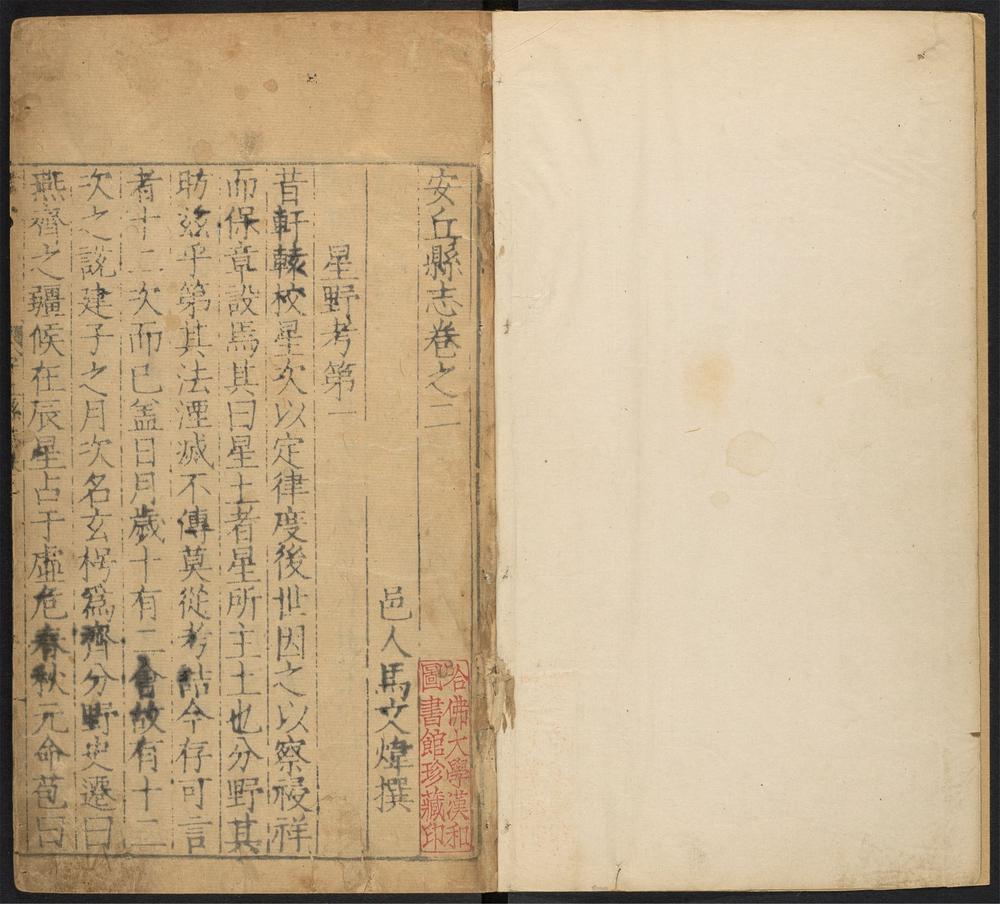 安丘縣志卷之二
邑人馬文煒撰
星野考第一
昔軒轅校星次以定律度後世因之以察祲祥
而保章設焉其曰星土者星所主土也分野其
昉茲乎第其法湮滅不傳莫從考詰今存可言
者十二次而已盖日月歲十有二會故有十二
次之說建子之月次名玄枵爲齊分野史遷曰
燕齊之疆候在辰星占于虛危春秋元命苞曰
哈佛大學漢和
圖書館珍藏印